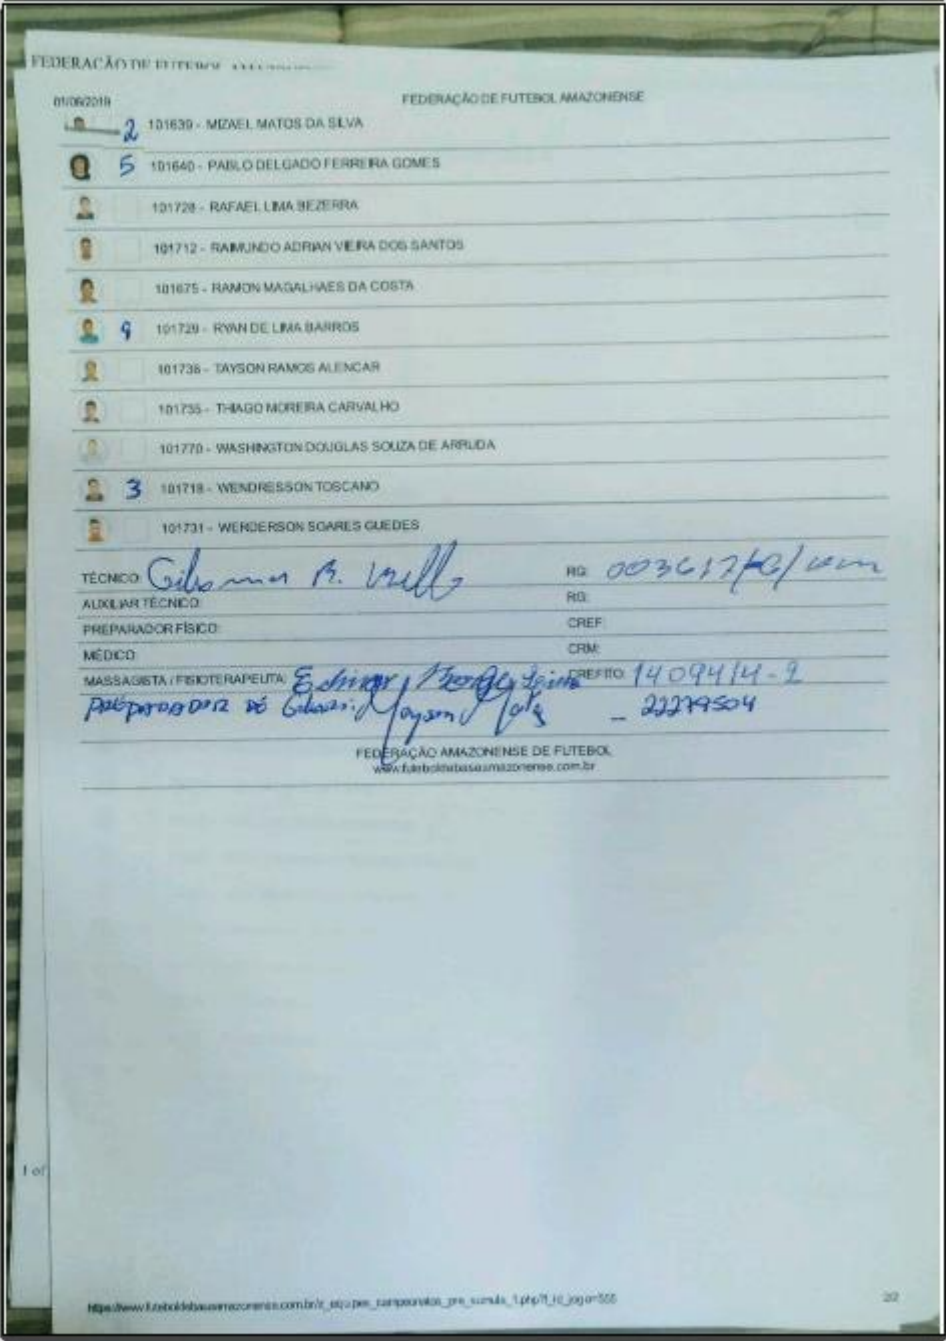 FEDERAÇÃO DE FUTEBOL
01/06/2019 FEDERAÇÃO DE FUTEBOL AMAZONENSE
2 101639 - MIZAEL MATOS DA SILVA
5 101640 - PABLO DELGADO FERREIRA GOMES
101728 - RAFAEL LIMA BEZERRA
101712 - RAIMUNDO ADRIAN VIEIRA DOS SANTOS
101675 - RAMON MAGALHAES DA COSTA
9 101729 - RYAN DE LIMA BARROS
101736 - TAYSON RAMOS ALENCAR
101735 - THIAGO MOREIRA CARVALHO
101770 - WASHINGTON DOUGLAS SOUZA DE ARRUDA
3 101718 - WENDRESSON TOSCANO
101731 - WERDERSON SOARES GUEDES
TÉCNICO: RG:
AUXILIAR TÉCNICO: RG:
PREPARADOR FÍSICO: CREF:
MÉDICO: CRM:
MASSAGISTA / FISIOTERAPEUTA: CREFITO:
22279504
FEDERAÇÃO AMAZONENSE DE FUTEBOL
www.futeboldebaseamazonense.com.br
1 of
https://www.futeboldebaseamazonense.com.br/z_equipes_campeonatos_pre_sumula_1.php?f_id_jogo=555 2/2